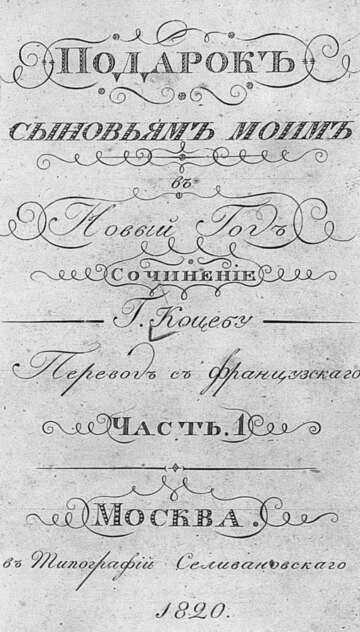 Подарокъ
сыновьямъ моимъ
въ
Новый Годъ
Сочиненіе
Г. Коцебу
Переводъ съ французскаго
Часть. 1
Москва.
въ Типографіи Селивановскаго
1820.